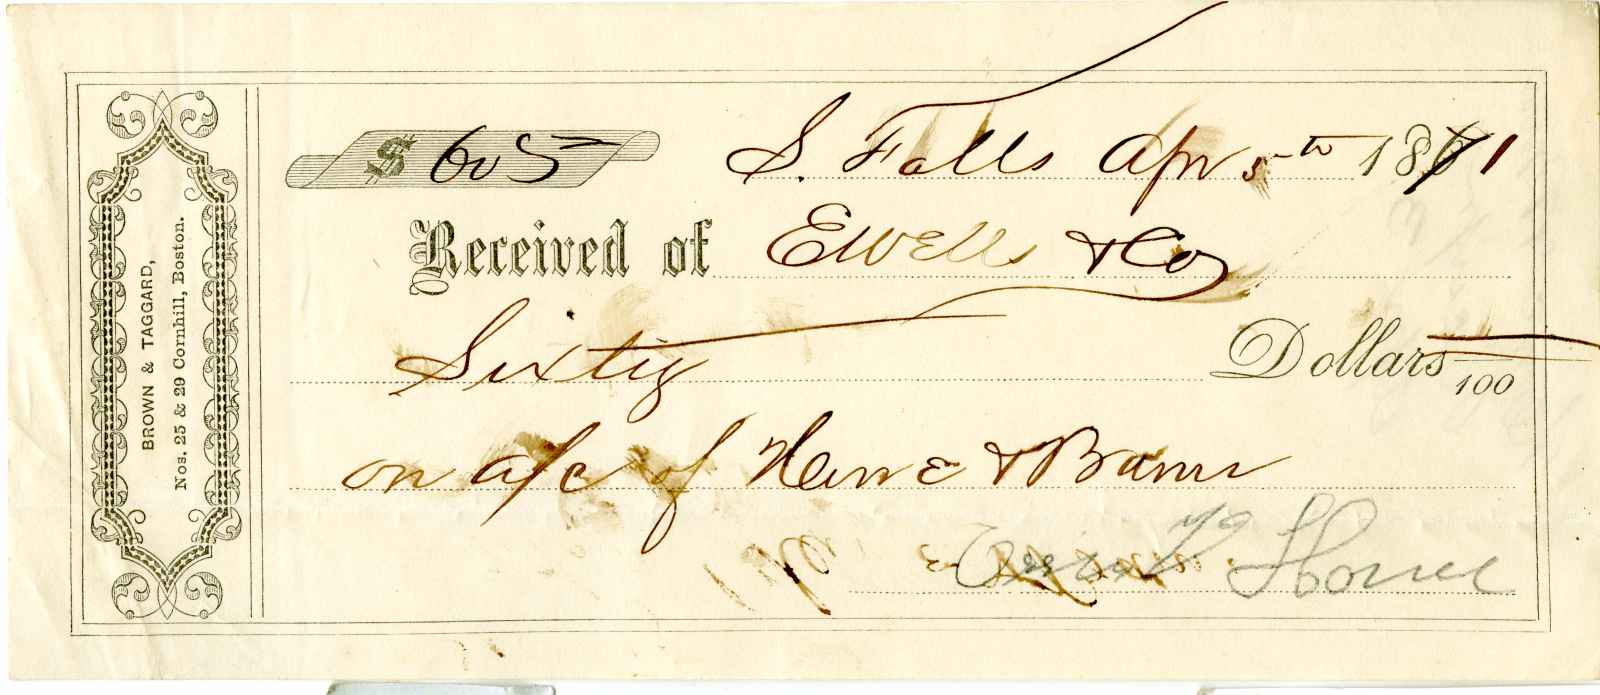 BROWN & TAGGARD,
Nos. 25 & 29 Cornhill, Boston.
$ 60
S. Falls Apr 5th 1861
Received of E Wells & Co
Sixty Dollars /100
on a/c of &